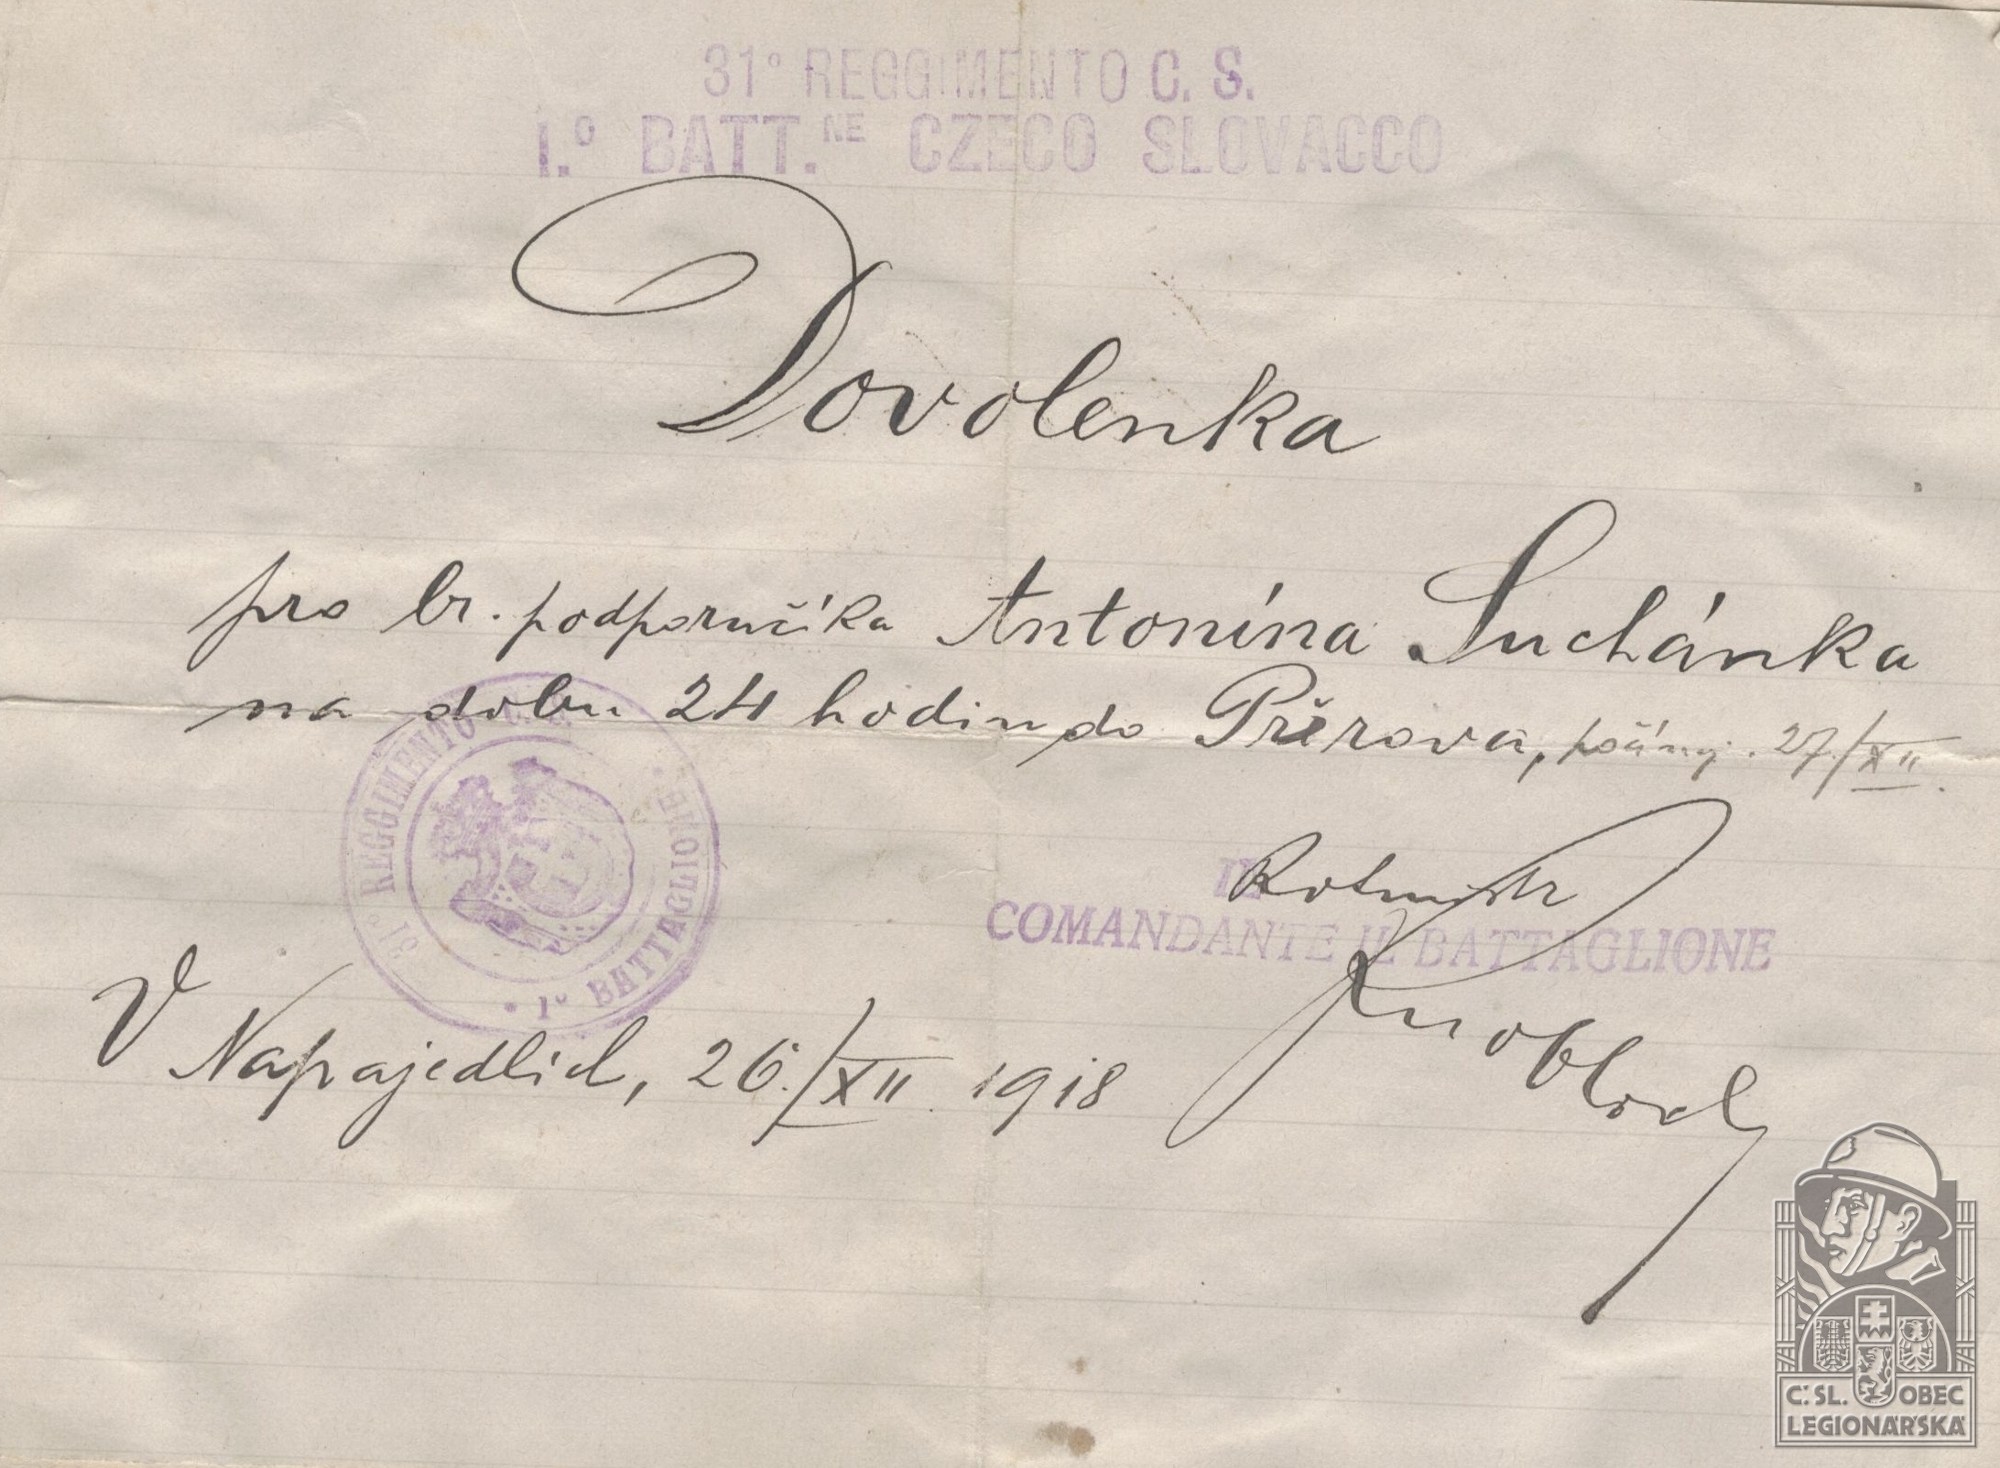 31° REGGIMENTO C. S.
I.° BATT.NE CZECO SLOVACCO
Dovolenka
pro br. podporučíka Antonína Suchánka
na dobu 24 hodin do Přerova, počínaj. 27./XII.
31° REGGIMENTO C. S. * 1° BATTAGLIONE *
Rotmistr
IL
COMANDANTE IL BATTAGLIONE
Knobloch
V Napajedlích, 26./XII. 1918
Č. SL. OBEC
LEGIONÁŘSKÁ